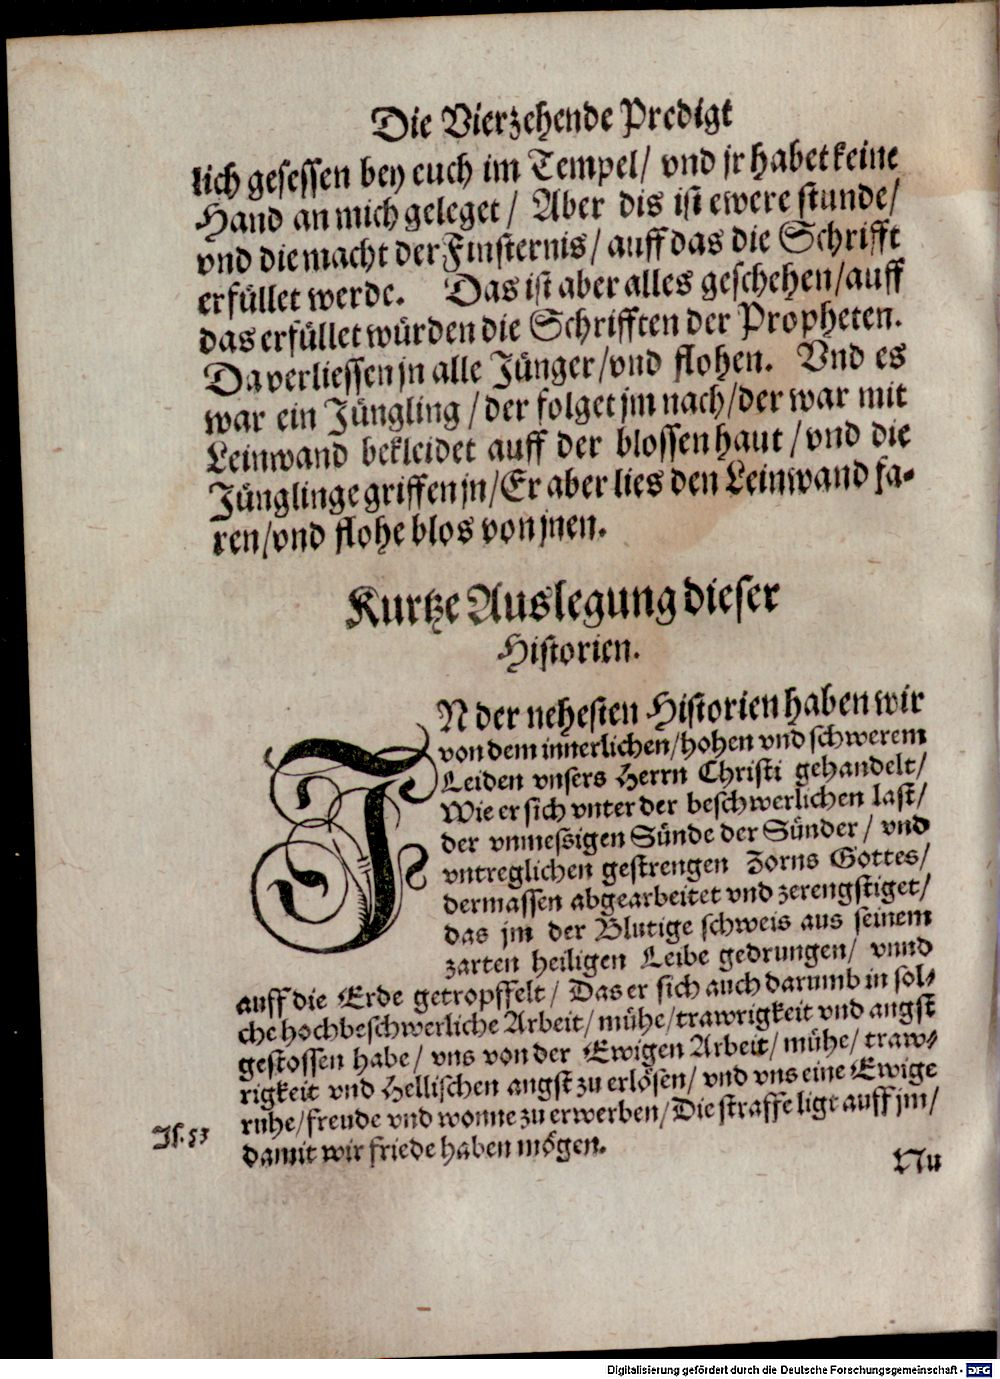 Die Vierzehende Predigt
lich gesessen bey euch im Tempel/ vnd jr habet keine
Hand an mich geleget / Aber dis ist ewere stunde/
vnd die macht der Finsternis/ auff das die Schrifft
erfüllet werde. Das ist aber alles geschehen/auff
das erfüllet würden die Schrifften der Propheten.
Da verliessen jn alle Jünger/vnd flohen. Vnd es
war ein Jüngling / der folget jm nach/der war mit
Leinwand bekleidet auff der blossen haut /vnd die
Jünglinge griffen jn/Er aber lies den Leinwand fa-
ren/vnd flohe blos von jnen.
Kurtze Auslegung dieser
Historien.
IN der nehesten Historien haben wir
von dem innerlichen/hohen vnd schwerem
Leiden vnsers Herrn Christi gehandelt/
Wie er sich vnter der beschwerlichen last/
der vnmessigen Sünde der Sünder / vnd
vntreglichen gestrengen Zorns Gottes/
dermassen abgearbeitet vnd zerengstiget/
das jm der Blutige schweis aus seinem
zarten heiligen Leibe gedrungen/ vnnd
auff die Erde getropffelt / Das er sich auch darumb in sol-
che hochbeschwerliche Arbeit/ mühe/trawrigkeit vnd angst
gestossen habe/ vns von der Ewigen Arbeit/ mühe/ traw-
rigkeit vnd Hellischen angst zu erlösen/ vnd vns eine Ewige
ruhe/freude vnd wonne zu erwerben/Die straffe ligt auff jm/
Js. 53
damit wir friede haben mögen.
Nu
Digitalisierung gefördert durch die Deutsche Forschungsgemeinschaft - DFG